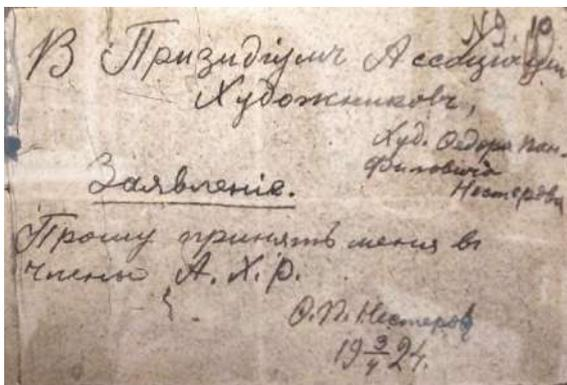 № 10
В Призидіумъ Ассоціаціи
Художниковъ,
Худ. Ѳедора Пан-
филовича
Нестерова
Заявленіе.
Прошу принять меня въ
члены А. Х. Р.
Ѳ. П. Нестеров
19 3/4 24.